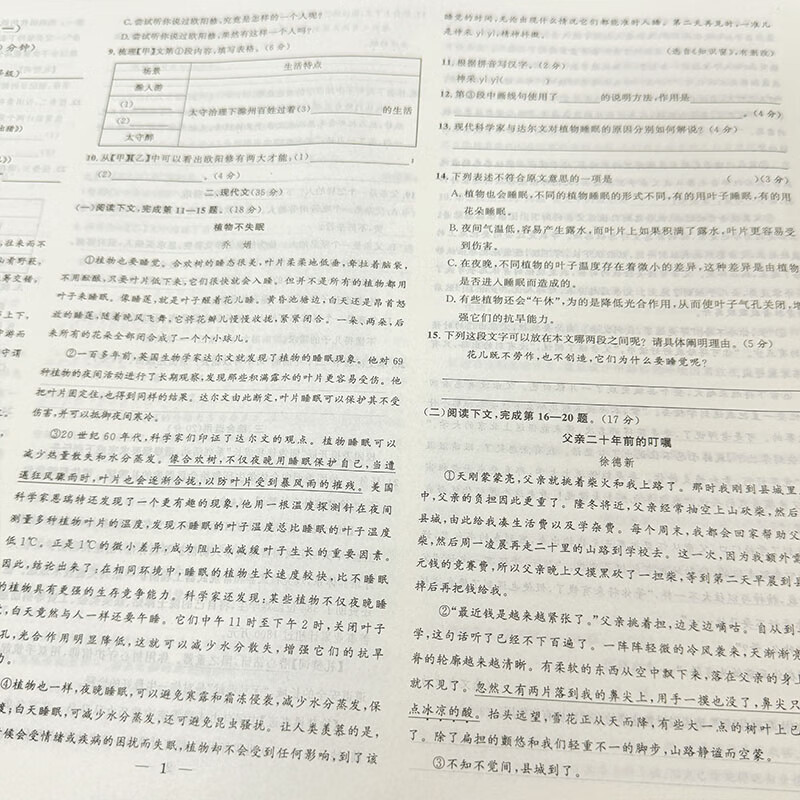 一)
分钟)
C.尝试听你说过欧阳修,究竟是怎样的一个人呢?
D.尝试听你说过欧阳修,果然有这样一个人吗?
9.梳理【甲】文第①段内容,填写表格。(6分)
场景 生活特点
滁人游
(1)
(2)
太守治理下滁州百姓过着(3) 的生活
太守醉
10.从【甲】【乙】中可以看出欧阳修有两大才能:(1)
(2) 。(4分)
二、现代文(35分)
(一)阅读下文,完成第11—15题。(18分)
植物不失眠
乔娟
①植物也要睡觉。合欢树的睡态很美,叶片柔柔地低垂,耷拉着脑袋,
不用酝酿,只要叶片低下来,它们很快就会入睡。但并不是所有的植物都用
叶子来睡眠。像睡莲,就是叶子醒着花儿睡。黄昏池塘边,白天还是昂首怒
放的睡莲,随着晚风飞舞。它将花瓣儿慢慢收拢,紧紧闭合。一朵、两朵,后
来所有的花朵全部闭合成了一个个小球儿。
②一百多年前,英国生物学家达尔文就发现了植物的睡眠现象。他对69
种植物的夜间活动进行了长期观察,发现那些积满露水的叶片更容易受伤。他
把叶片固定住,也得到同样的结果。达尔文由此断定,叶片睡眠可以保护其不受
伤害,并可以抵御夜间寒冷。
③20世纪60年代,科学家们印证了达尔文的观点。植物睡眠可以
减少热量散失和水分蒸发。像合欢树,不仅夜晚用睡眠保护自己,当遭
遇狂风骤雨时,叶片也会逐渐合拢,以防叶片受到暴风雨的摧残。美国
科学家恩瑞特还发现了一个更有趣的现象,他用一根温度探测针在夜间
测量多种植物叶片的温度,发现不睡眠的叶子温度总比睡眠的叶子温度
低1℃。正是1℃的微小差异,成为阻止或减缓叶子生长的重要因素。
因此,结论出来了:在相同环境中,睡眠的植物生长速度较快,比不睡眠
的植物具有更强的生存竞争能力。科学家还发现:某些植物不仅夜晚睡
,白天竟然与人一样还要午睡。它们中午11时至下午2时,关闭叶子
孔,光合作用明显降低,这就可以减少水分散失,增强它们的抗旱
力。
④植物也一样,夜晚睡眠,可以避免寒露和霜冻侵袭,减少水分蒸发,保
;白天睡眠,可减少水分蒸发,还可避免昆虫骚扰。让人类羡慕的是,
候会受情绪或疾病的困扰而失眠,植物却不会受到任何影响,到了该
— 1 —
睡觉的时间,无论出现什么情况它们都能准时入睡。第二天再见时,一准儿
是神采yì yì,精神抖擞。
(选自《知识窗》,有删改)
11.根据拼音写汉字。(2分)
神采yì yì( )
12.第③段中画线句使用了 的说明方法,作用是
。(4分)
13.现代科学家与达尔文对植物睡眠的原因分别如何解说?(4分)
14.下列表述不符合原文意思的一项是 ( )(3分)
A.植物也会睡眠,不同的植物睡眠的形式不同,有的用叶子睡眠,有的用
花朵睡眠。
B.夜间气温低,容易产生露水,而叶片上如果积满了露水,叶片更容易受
到伤害。
C.在夜晚,不同植物的叶子温度存在着微小的差异,这种差异是由植物
是否进入睡眠而造成的。
D.有些植物还会“午休”,为的是降低光合作用,从而使叶子气孔关闭,增
强它们的抗旱能力。
15.下列这段文字可以放在本文哪两段之间呢?请具体阐明理由。(5分)
花儿既不劳作,也不创造,它们为什么要睡觉呢?
(二)阅读下文,完成第16—20题。(17分)
父亲二十年前的叮嘱
徐德新
①天刚蒙蒙亮,父亲就挑着柴火和我上路了。那时我刚到县城里
中,父亲的负担因此更重了。隆冬将近,父亲经常抽空上山砍柴,然后
县城,由此给我凑生活费以及学杂费。每个周末,我都会回家帮助父
柴,然后周一凌晨再走二十里的山路到学校去。这一次,因为我额外需
元钱的竞赛费,所以父亲晚上又摸黑砍了一担柴,等到第二天早晨到县
掉后再把钱给我。
②“最近钱是越来越紧张了。”父亲挑着担,边走边嘀咕。自从到
学,这句话听了已经不下百遍了。一阵阵轻微的冷风袭来,天渐渐亮
脊的轮廓越来越清晰。有柔软的东西从空中飘下来,落在父亲的身上
就不见了。忽然又有两片落到我的鼻尖上,用手一摸也没了,鼻尖只
点冰凉的酸。抬头远望,雪花正从天而降,有些大一点的树叶上已
了。除了扁担的颤悠和我们轻重不一的脚步,山路静谧而空蒙。
③不知不觉间,县城到了。